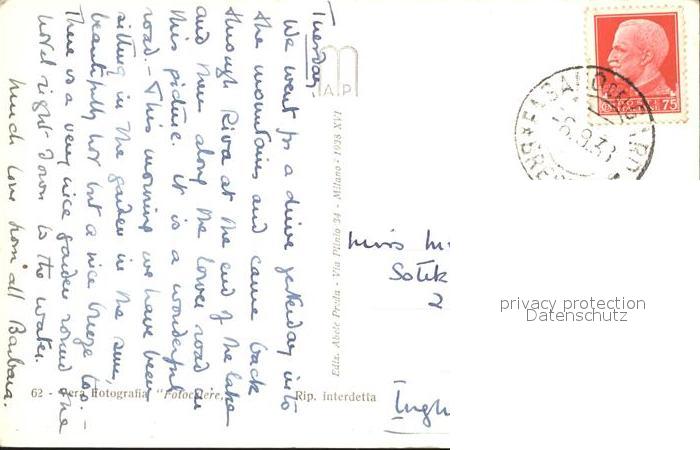 Tuesday
We went for a drive yesterday into
the mountains and came back
through Riva at the end of the lake
and then along the lower road in
this picture. It is a wonderful
road. - This morning we have been
sitting in the garden in the sun,
beautifully hot but a nice breeze too. -
There is a very nice garden round the
hotel right down to the water.
Much love from all Barbara.
MAP
1938 XVI
62 - Vera Fotografia "Fotocelere,
Rip. interdetta
Miss
2
Ingh
FASANO
BRES
6.9.38
75
privacy protection
Datenschutz